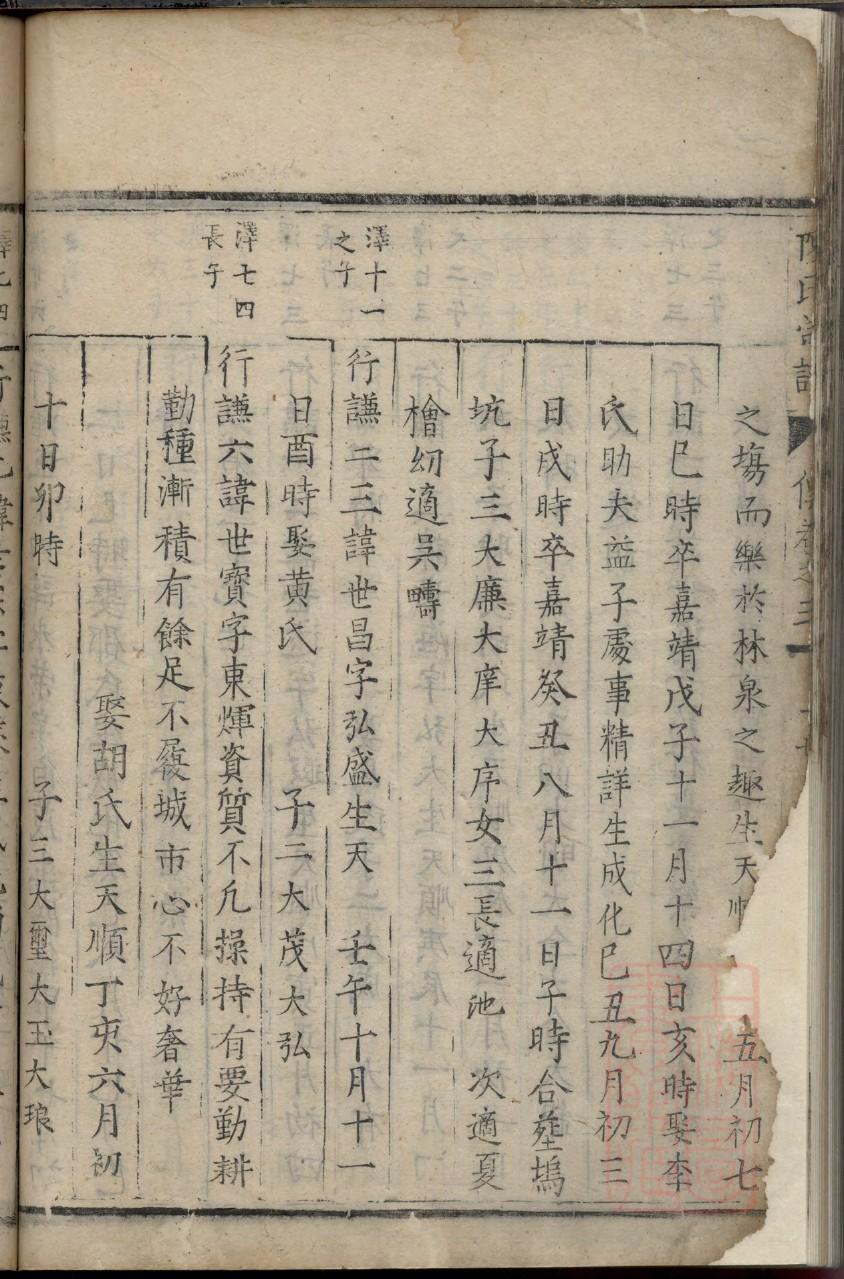 氏
傳
之塲而樂於林泉之趣生天順 五月初七
日巳時卒嘉靖戊子十一月十四日亥時娶李
氏助夫益子處事精詳生成化己丑九月初三
日戌時卒嘉靖癸丑八月十一日子時合塟塢
坑子三大廉大庠大序女三長適池 次適夏
檜㓜適吴疇
澤十一
之子
行謙二三諱世昌字弘盛生天 壬午十月十一
日酉時娶黄氏 子二大茂大弘
澤七四
長子
行謙六諱世寳字東煇資質不凡操持有要勤耕
勤種漸積有餘足不履城市心不好奢華
娶胡氏生天順丁亥六月初
十日卯時 子三大璽大玉大琅